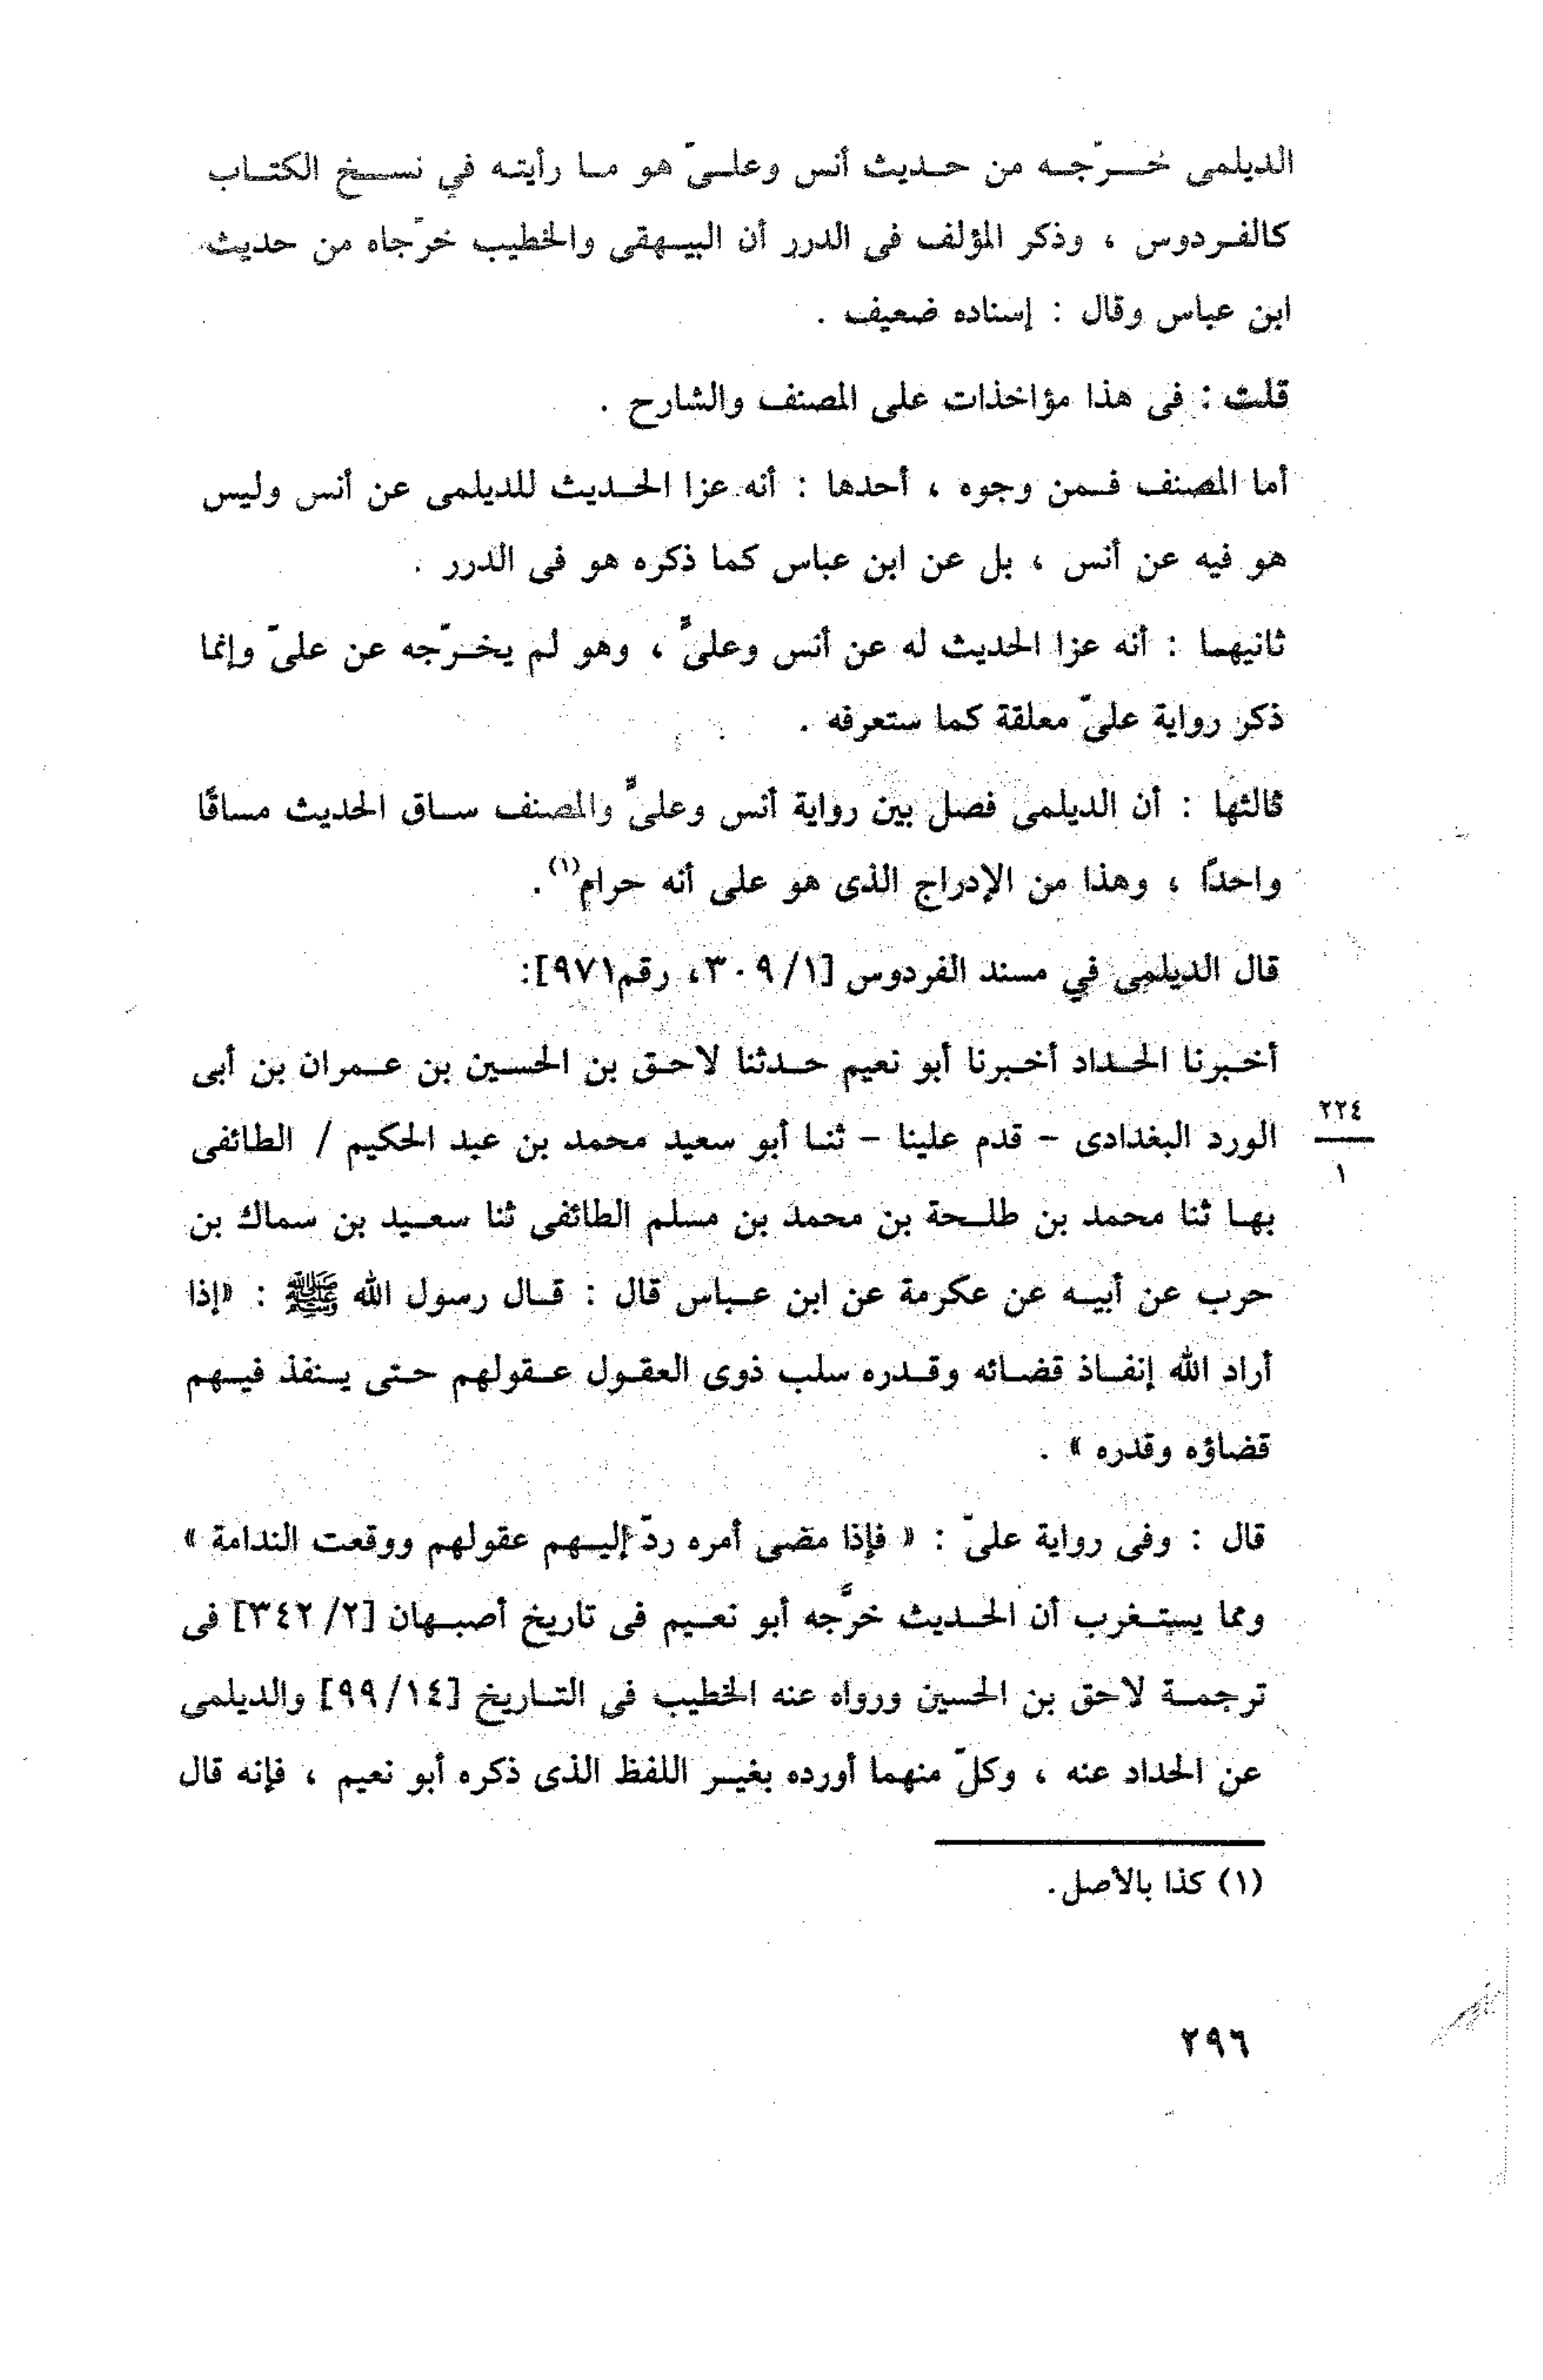 الديلمى خرّجه من حديث أنس وعلىّ هو ما رأيته في نسخ الكتاب
كالفردوس ، وذكر المؤلف فى الدرر أن البيهقى والخطيب خرّجاه من حديث
ابن عباس وقال : إسناده ضعيف .
قلت : فى هذا مؤاخذات على المصنف والشارح .
أما المصنف فمن وجوه ، أحدها : أنه عزا الحديث للديلمى عن أنس وليس
هو فيه عن أنس ، بل عن ابن عباس كما ذكره هو فى الدرر .
ثانيهما : أنه عزا الحديث له عن أنس وعلىٍّ ، وهو لم يخرّجه عن علىّ وإنما
ذكر رواية علىّ معلقة كما ستعرفه .
ثالثها : أن الديلمى فصل بين رواية أنس وعلىٍّ والمصنف ساق الحديث مساقًا
واحدًا ، وهذا من الإدراج الذى هو على أنه حرام(١).
قال الديلمى في مسند الفردوس [١/ ٣٠٩، رقم٩٧١]:
أخبرنا الحداد أخبرنا أبو نعيم حدثنا لاحق بن الحسين بن عمران بن أبى
الورد البغدادى - قدم علينا - ثنا أبو سعيد محمد بن عبد الحكيم / الطائفى
٢٢٤
١
بها ثنا محمد بن طلحة بن محمد بن مسلم الطائفى ثنا سعيد بن سماك بن
حرب عن أبيه عن عكرمة عن ابن عباس قال : قال رسول الله ﷺ : «إذا
أراد الله إنفاذ قضائه وقدره سلب ذوى العقول عقولهم حتى ينفذ فيهم
قضاؤه وقدره » .
قال : وفى رواية علىّ : « فإذا مضى أمره ردّ إليهم عقولهم ووقعت الندامة »
ومما يستغرب أن الحديث خرَّجه أبو نعيم فى تاريخ أصبهان [٢/ ٣٤٢] فى
ترجمة لاحق بن الحسين ورواه عنه الخطيب فى التاريخ [١٤/ ٩٩] والديلمى
عن الحداد عنه ، وكلّ منهما أورده بغير اللفظ الذى ذكره أبو نعيم ، فإنه قال
(١) كذا بالأصل.
٢٩٦